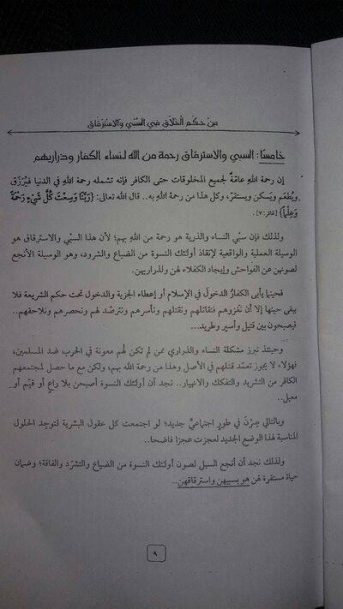 من حكم الخلاق في السبي والاسترقاق
خامسًا: السبي والاسترقاق رحمة من الله لنساء الكفار وذراريهم
إن رحمة الله عامة لجميع المخلوقات حتى الكافر فإنه تشمله رحمة الله في الدنيا فيُرزق،
ويُطعَم ويسكن ويستقر، وكل هذا من رحمة الله به.. قال الله تعالى: {رَبَّنَا وَسِعْتَ كُلَّ شَيْءٍ رَحْمَةً
وَعِلْمًا} [غافر:٧].
ولذلك فإن سبي النساء والذرية هو رحمة من الله بهم؛ لأن هذا السبي والاسترقاق هو
الوسيلة العملية والواقعية لإنقاذ أولئك النسوة من الضياع والشرود، وهو الوسيلة الأنجع
لصونهن عن الفواحش وإيجاد الكفلاء لهن وللذراريهن.
فحينما يأبى الكفار الدخول في الإسلام أو إعطاء الجزية والدخول تحت حكم الشريعة فلا
يبقى حينها إلا أن نغزوهم ونقاتلهم ونقتلهم ونأسرهم ونترصد لهم ونحصرهم ونلاحقهم..
فيصبحون بين قتيل وأسير وطريد...
وحينئذ تبرز مشكلة النساء والذراري ممن لم تكن لهم معونة في الحرب ضد المسلمين،
فهؤلاء لا يجوز تعمّد قتلهم في الأصل وهذا من رحمة الله بهم، ولكن مع ما حصل لمجتمعهم
الكافر من التشريد والتفكك والانهيار.. نجد أن أولئك النسوة أصبحن بلا راعٍ أو قيّم أو
معيل..
وبالتالي صِرْنَ في طور اجتماعي جديد؛ لو اجتمعت كل عقول البشرية لتوجد الحلول
المناسبة لهذا الوضع الجديد لعجزت عجزا فاضحا..
ولذلك نجد أن أنجع السبل لصون أولئك النسوة من الضياع والتشرّد والفاقة؛ وضمان
حياة مستقرة لهن هو بسبيهن واسترقاقهن..
٩